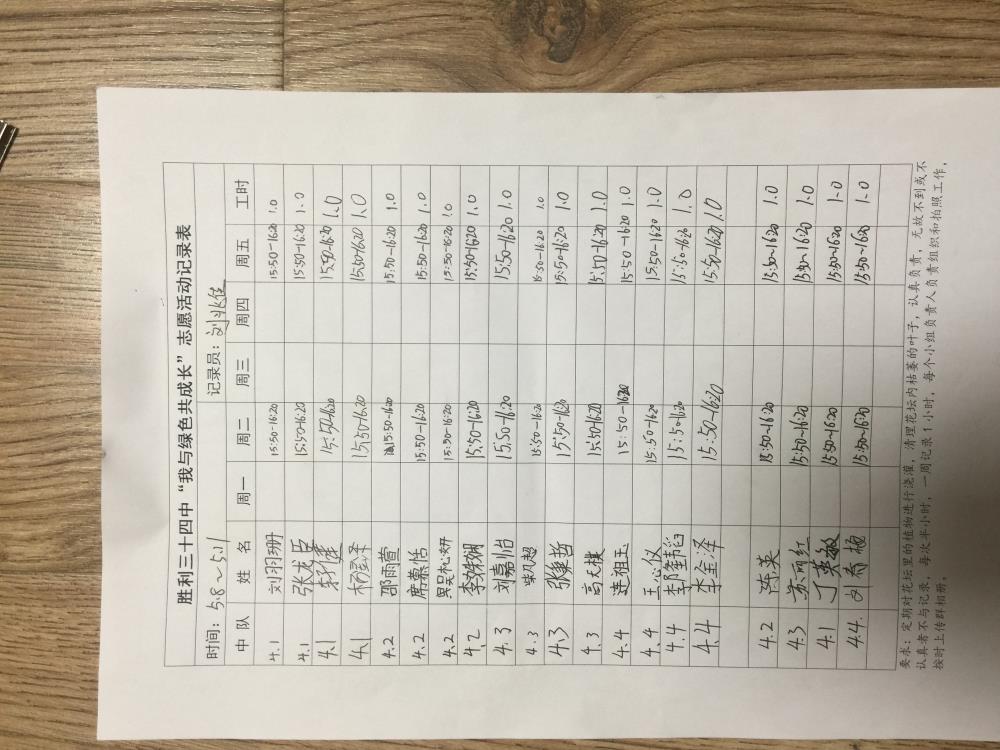 胜利三十四中“我与绿色共成长”志愿活动记录表
时间：5.8～5.11 记录员：
中队 姓名 周一 周二 周三 周四 周五 工时
4.1 刘羽珊 15:50-16:20 15:50-16:20 1.0
4.1 张龙臣 15:50-16:20 15:50-16:20 1.0
4.1 15:50-16:20 15:50-16:20 1.0
4.1 15:50-16:20 15:50-16:20 1.0
4.2 邵雨萱 15:50-16:20 15:50-16:20 1.0
4.2 席慕恬 15:50-16:20 15:50-16:20 1.0
4.2 吴松妍 15:50-16:20 15:50-16:20 1.0
4.2 15:50-16:20 15:50-16:20 1.0
4.3 刘嘉 15:50-16:20 15:50-16:20 1.0
4.3 柴凡超 15:50-16:20 15:50-16:20 1.0
4.3 张秉哲 15:50-16:20 15:50-16:20 1.0
4.3 高天祺 15:50-16:20 15:50-16:20 1.0
4.4 连祖玉 15:50-16:20 15:50-16:20 1.0
4.4 王心仪 15:50-16:20 15:50-16:20 1.0
4.4 15:50-16:20 15:50-16:20 1.0
4.4 李金泽 15:50-16:20 15:50-16:20 1.0
4.2 陈英 15:50-16:20 15:50-16:20 1.0
4.3 苏丽红 15:50-16:20 15:50-16:20 1.0
4.1 丁英敏 15:50-16:20 15:50-16:20 1.0
4.4. 15:50-16:20 15:50-16:20 1.0
要求：定期对花坛里的植物进行浇灌，清理花坛内枯萎的叶子，认真负责，无故不到或不
认真者不与记录，每次半小时，一周记录1小时，每个小组负责人负责组织和拍照工作，
按时上传群相册。